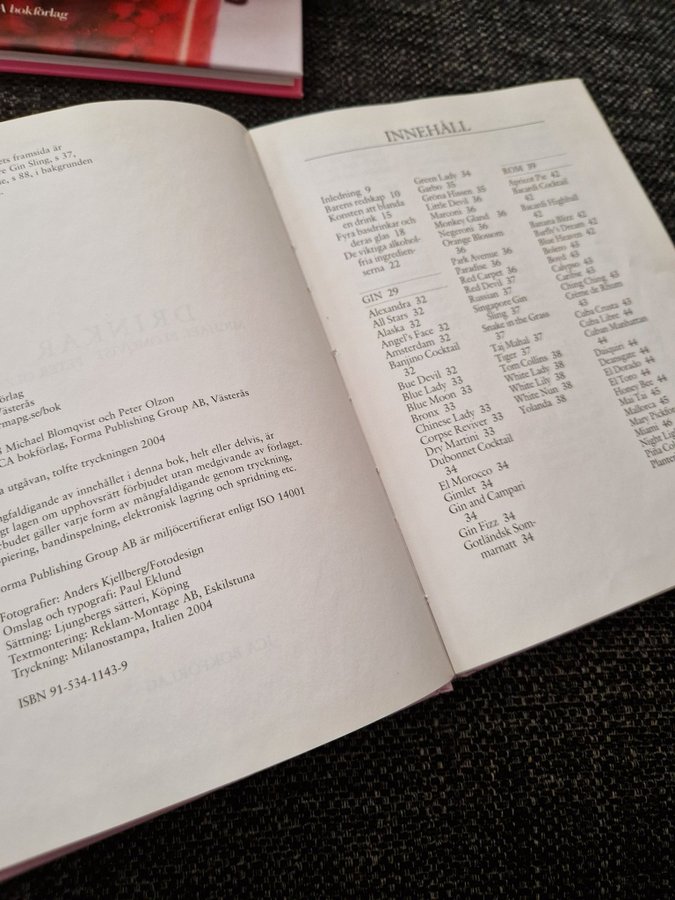 A bokförlag
ets framsida är
re Gin Sling, s 37,
e, s 88, i bakgrunden
förlag
Västerås
rmapg.se/bok
Michael Blomqvist och Peter Olzon
CA bokförlag, Forma Publishing Group AB, Västerås
a utgåvan, tolfte tryckningen 2004
ngfaldigande av innehållet i denna bok, helt eller delvis, är
gt lagen om upphovsrätt förbjudet utan medgivande av förlaget.
rbudet gäller varje form av mångfaldigande genom tryckning,
piering, bandinspelning, elektronisk lagring och spridning etc.
Forma Publishing Group AB är miljöcertifierat enligt ISO 14001
Fotografier: Anders Kjellberg/Fotodesign
Omslag och typografi: Paul Eklund
Sättning: Ljungbergs sätteri, Köping
Textmontering: Reklam-Montage AB, Eskilstuna
Tryckning: Milanostampa, Italien 2004
ISBN 91-534-1143-9
INNEHÅLL
Inledning 9
Barens redskap 10
Konsten att blanda
en drink 15
Fyra basdrinkar och
deras glas 18
De viktiga alkohol-
fria ingredien-
serna 22
GIN 29
Alexandra 32
All Stars 32
Alaska 32
Angel's Face 32
Amsterdam 32
Banjino Cocktail
32
Bue Devil 32
Blue Lady 33
Blue Moon 33
Bronx 33
Chinese Lady 33
Corpse Reviver 33
Dry Martini 33
Dubonnet Cocktail
34
El Morocco 34
Gimlet 34
Gin and Campari
34
Gin Fizz 34
Gotländsk Som-
marnatt 34
Green Lady 34
Garbo 35
Gröna Hissen 35
Little Devil 36
Marconi 36
Monkey Gland 36
Negeroni 36
Orange Blossom
36
Park Avenue 36
Paradise 36
Red Carpet 36
Red Devil 37
Russian 37
Singapore Gin
Sling 37
Snake in the Grass
37
Taj Mahal 37
Tiger 37
Tom Collins 38
White Lady 38
White Lily 38
White Nun 38
Yolanda 38
ROM 39
Apricot Pie 42
Bacardi Cocktail
42
Bacardi Highball
42
Banana Blizz 42
Barfly's Dream 42
Blue Heaven 42
Bolero 43
Boyd 43
Calypso 43
Carifne 43
Ching Ching 43
Crème de Rhum
43
Cuba Crusta 43
Cuba Libre 44
Cuban Manhattan
44
Daiquiri 44
Deansgate 44
El Dorado 44
El Toro 44
Honey Bee 44
Mai Tai 45
Mallorca 45
Mary Pickfor
Miami 46
Night Ligh
Piña Col
Planter